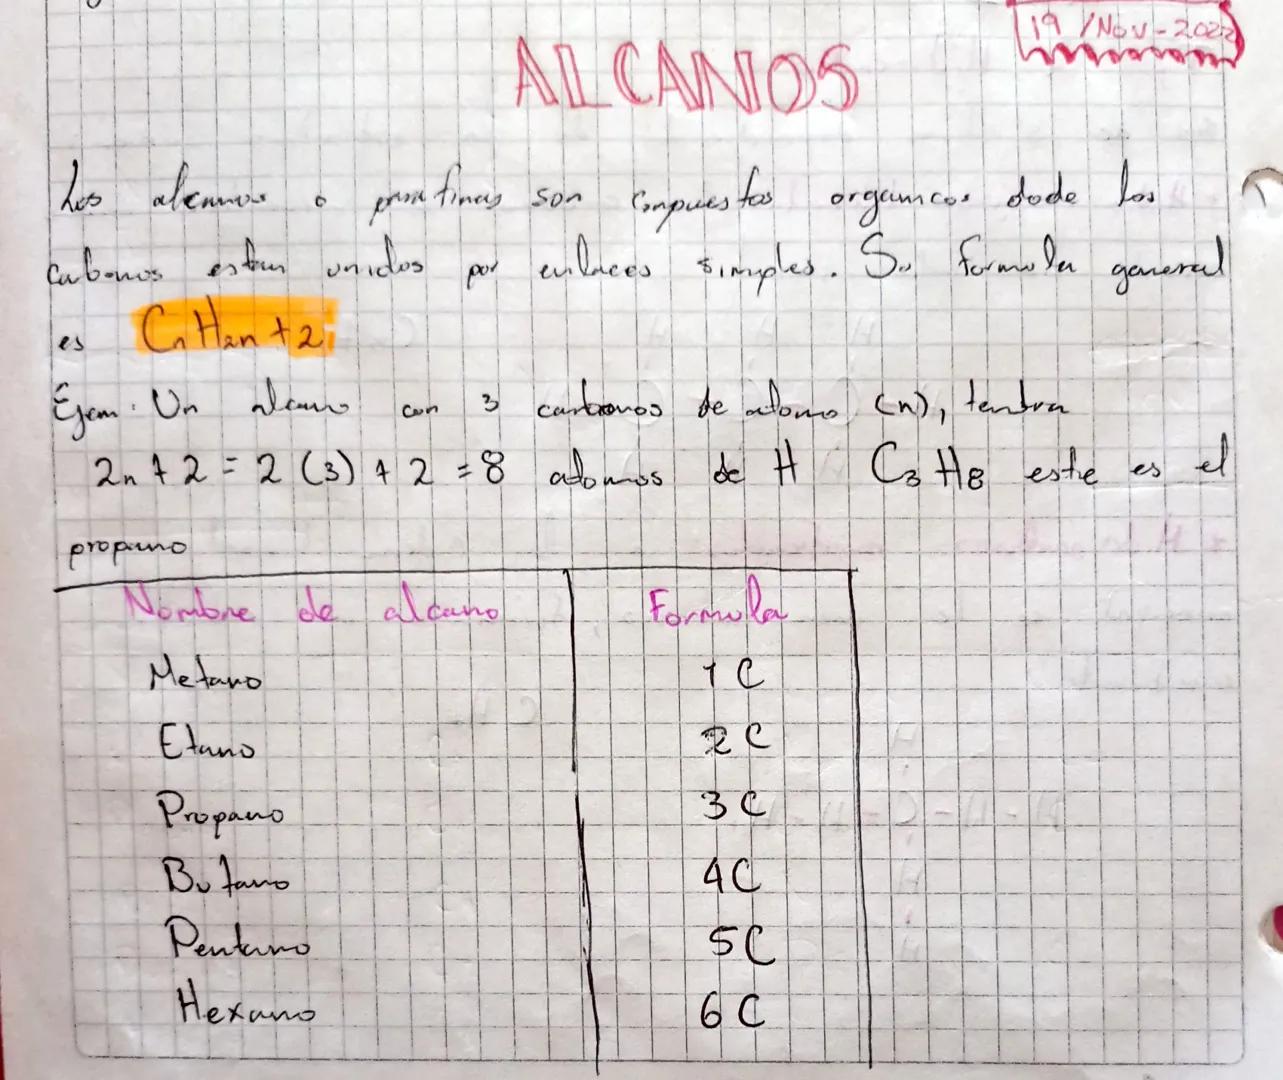 19/Nov-2022
ALCANOS
Los alcanos o parafinas son compuestos organicos dode los
cabonos estan unidos por enlaces simples. Su formula general
es CnH2n+2
Ejem: Un alcano con 3 carbonos de atomo (n), tendra
2n+2=2(3)+2=8 atomos de H C3H8 este es el
propano
Nombre de alcano Formula
Metano 1C
Etano 2C
Propano 3C
Butano 4C
Pentano 5C
Hexano 6C